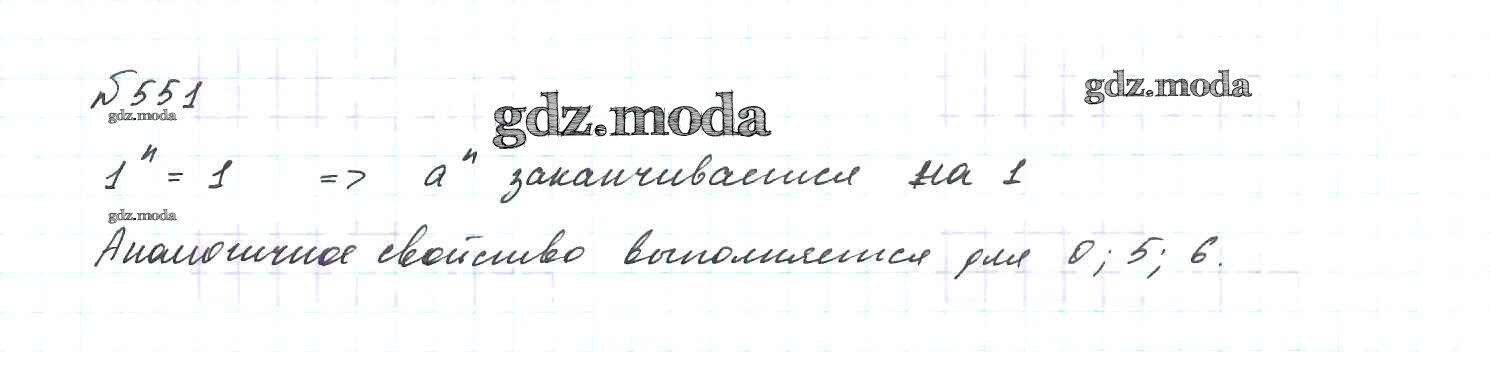 №551
gdz.moda
gdz.moda
gdz.moda
1ⁿ = 1 => aⁿ заканчивается на 1
gdz.moda
Аналогичное свойство выполняется для 0; 5; 6.